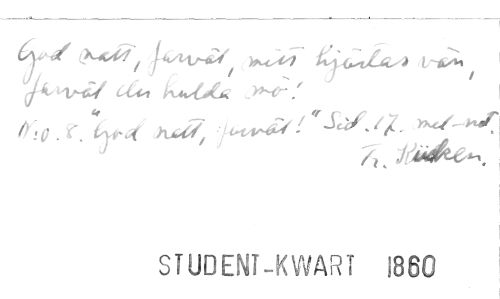 God natt, farväl, mitt hjärtas vän,
farväl du hulda mö!
N:o. 8. "God natt, farväl!" Sid. 17. mel-not
Fr. Kücken.
STUDENT-KWART 1860